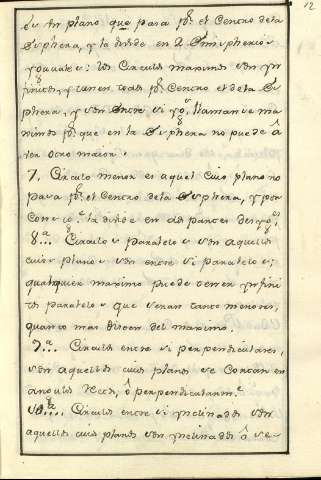 12
plano que passa p.r el Centro de la
Sphera, y la divide en 2 Emispherios
yguales: los Circulos maximos son yn
finitos, y tienen todos p.r Centro el de la S
phera, y son entre si yg.s, llamanse ma
ximos p.r que en la Sphera no puede â
ver otro maior.
7. Circulo menor es aquel cuio plano no
pasa p.r el Centro de la Sphera, y por
la divide en dos partes desyg.s
8.a ... Circulos paralelos son aquellos
cuios planos son entre si paralelos;
qualquier maximo puede tener ynfini
tos paralelos que seran tanto menores,
quanto mas disten del maximo.
9.a ... Circulos entre si perpendiculares,
son aquellos cuios planos se cortan en
angulos rectos, ô perpendicularm.te
10.a ... Circulos entre si ynclinados son
aquellos cuios planos son ynclinados ô se-